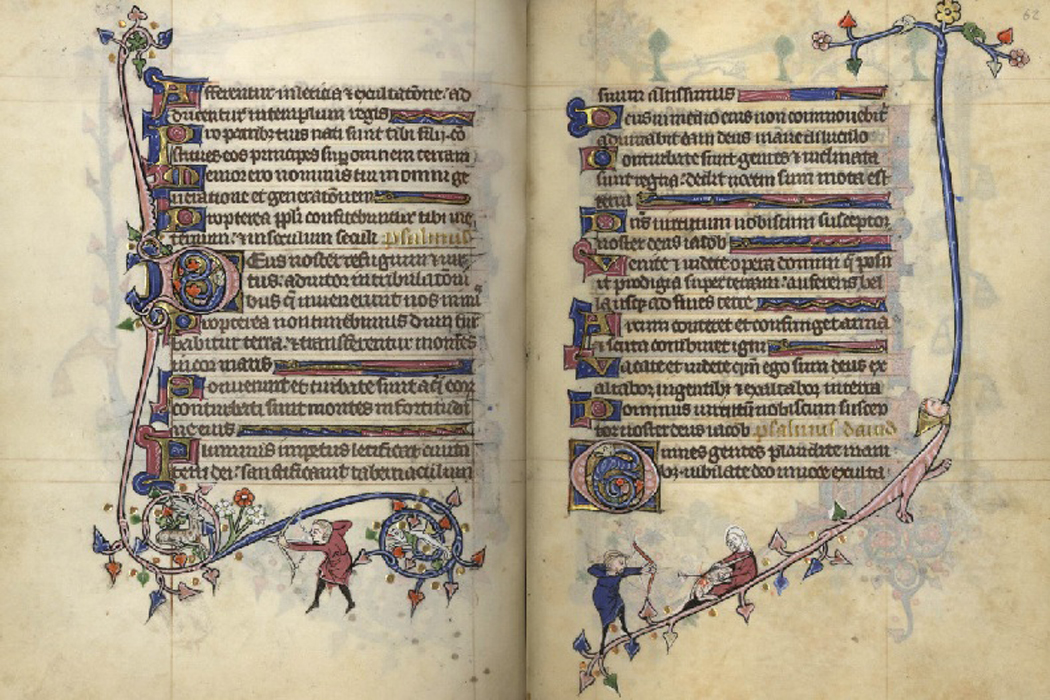 Afferentur in leticia & exultatōne. ad
ducentur in templum regis
Pro patribus tuis nati sunt tibi filii. cō
stitues eos principes sup̄ omnem terram
Memor ero nominis tui in omni ge
neratione et generatōnem
Propterea pp̄li confitebuntur tibi in e
ternum: & in seculum seculi psalmus
Deus noster refugium & uir
tus: adiutor in tribulatōni
bus q̄ inuenerunt nos nimi
Propterea non timebimus dum tur
babitur terra. & transferentur montes
in cor maris
Sonuerunt et turbate sunt aq̄ eor
conturbati sunt montes in fortitudi
ne eius
Fluminis impetus letificat ciuita
tem dei: sanctificauit tabernaculum
suum altissimus
Deus in medio eius non commouebit
adiuuabit eam deus mane diluculo
Conturbate sunt gentes & inclinata
sunt regna: dedit uocem suam mota est
terra
Dn̄s uirtutum nobiscum susceptor
noster deus iacob
Venite & uidete opera domini q̄ posu
it prodigia super terram: auferens bel
la usq; ad fines terre
Arcum conteret et confringet arma
& scuta comburet igni
Vacate et uidete qm̄ ego sum deus ex
altabor in gentibꝫ & exaltabor in terra
Dominus uirtutū nobiscum suscep
tor noster deus iacob psalmus dauid
Omnes gentes plaudite mani
bꝫ. iubilate deo in uoce exulta
62